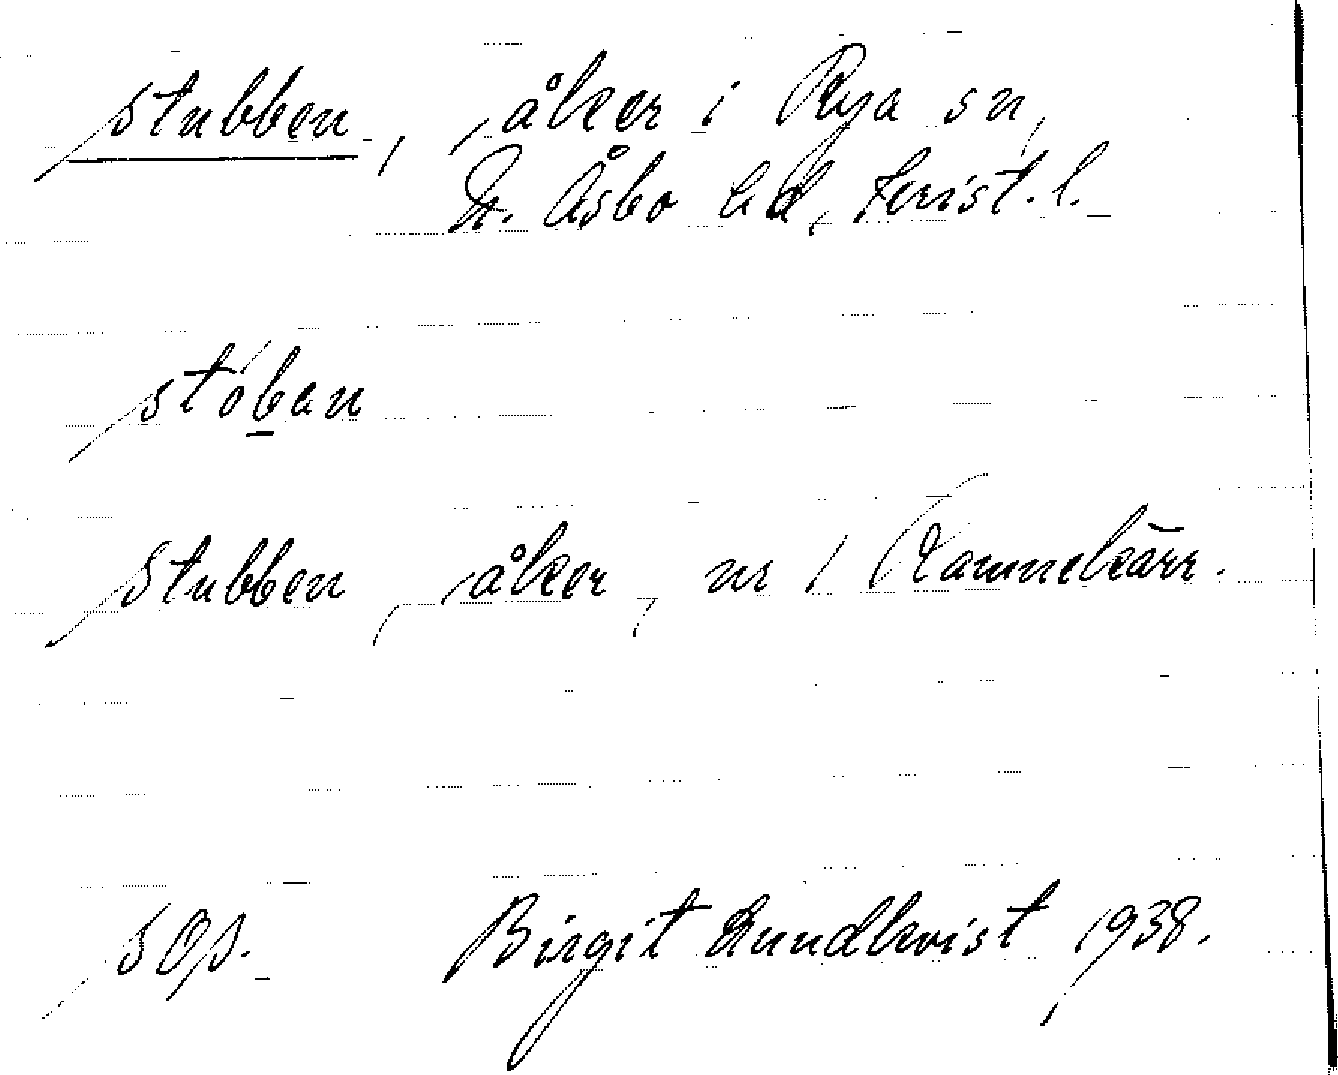 Stubben, åker i Rya sn,
N. Åsbo hd, Krist. l.
stób̲an
Stubben, åker, nr 1
SOp. Birgit Lundkvist 1938.